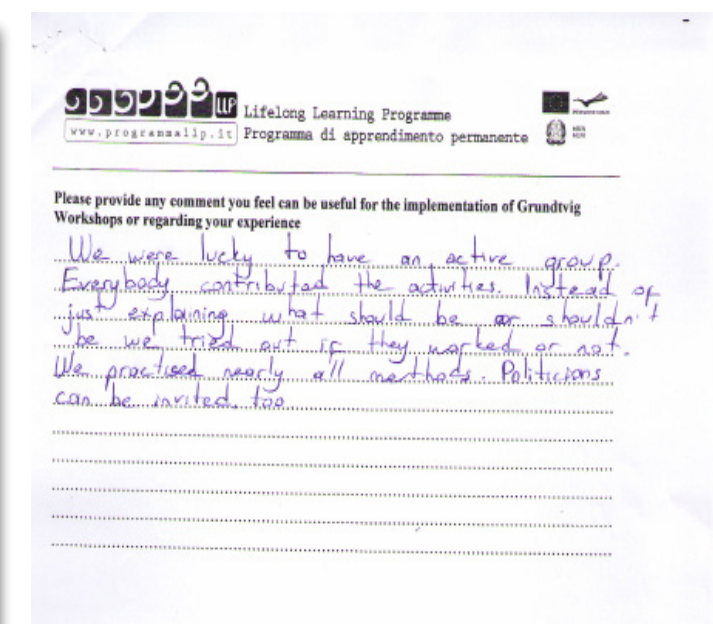 LLP Lifelong Learning Programme
www.programmallp.it Programma di apprendimento permanente
Please provide any comment you feel can be useful for the implementation of Grundtvig
Workshops or regarding your experience
We were lucky to have an active group.
Everybody contributed the activities. Instead of
just explaining what should be or shouldn't
be we tried out if they worked or not.
We practised nearly all merthods. Politicions
can be invited, too